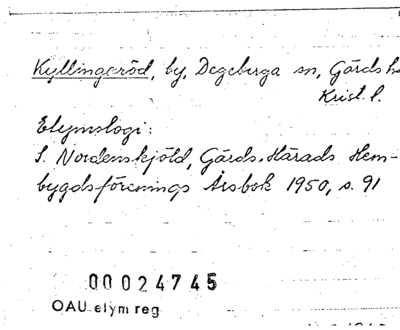 Kyllingaröd, by, Degeberga sn, Gärds h
Krist. l.
Etymologi:
S. Nordenskjöld, Gärds Härads Hem-
bygdsförenings Årsbok 1950, s. 91
00024745
OAU etym reg